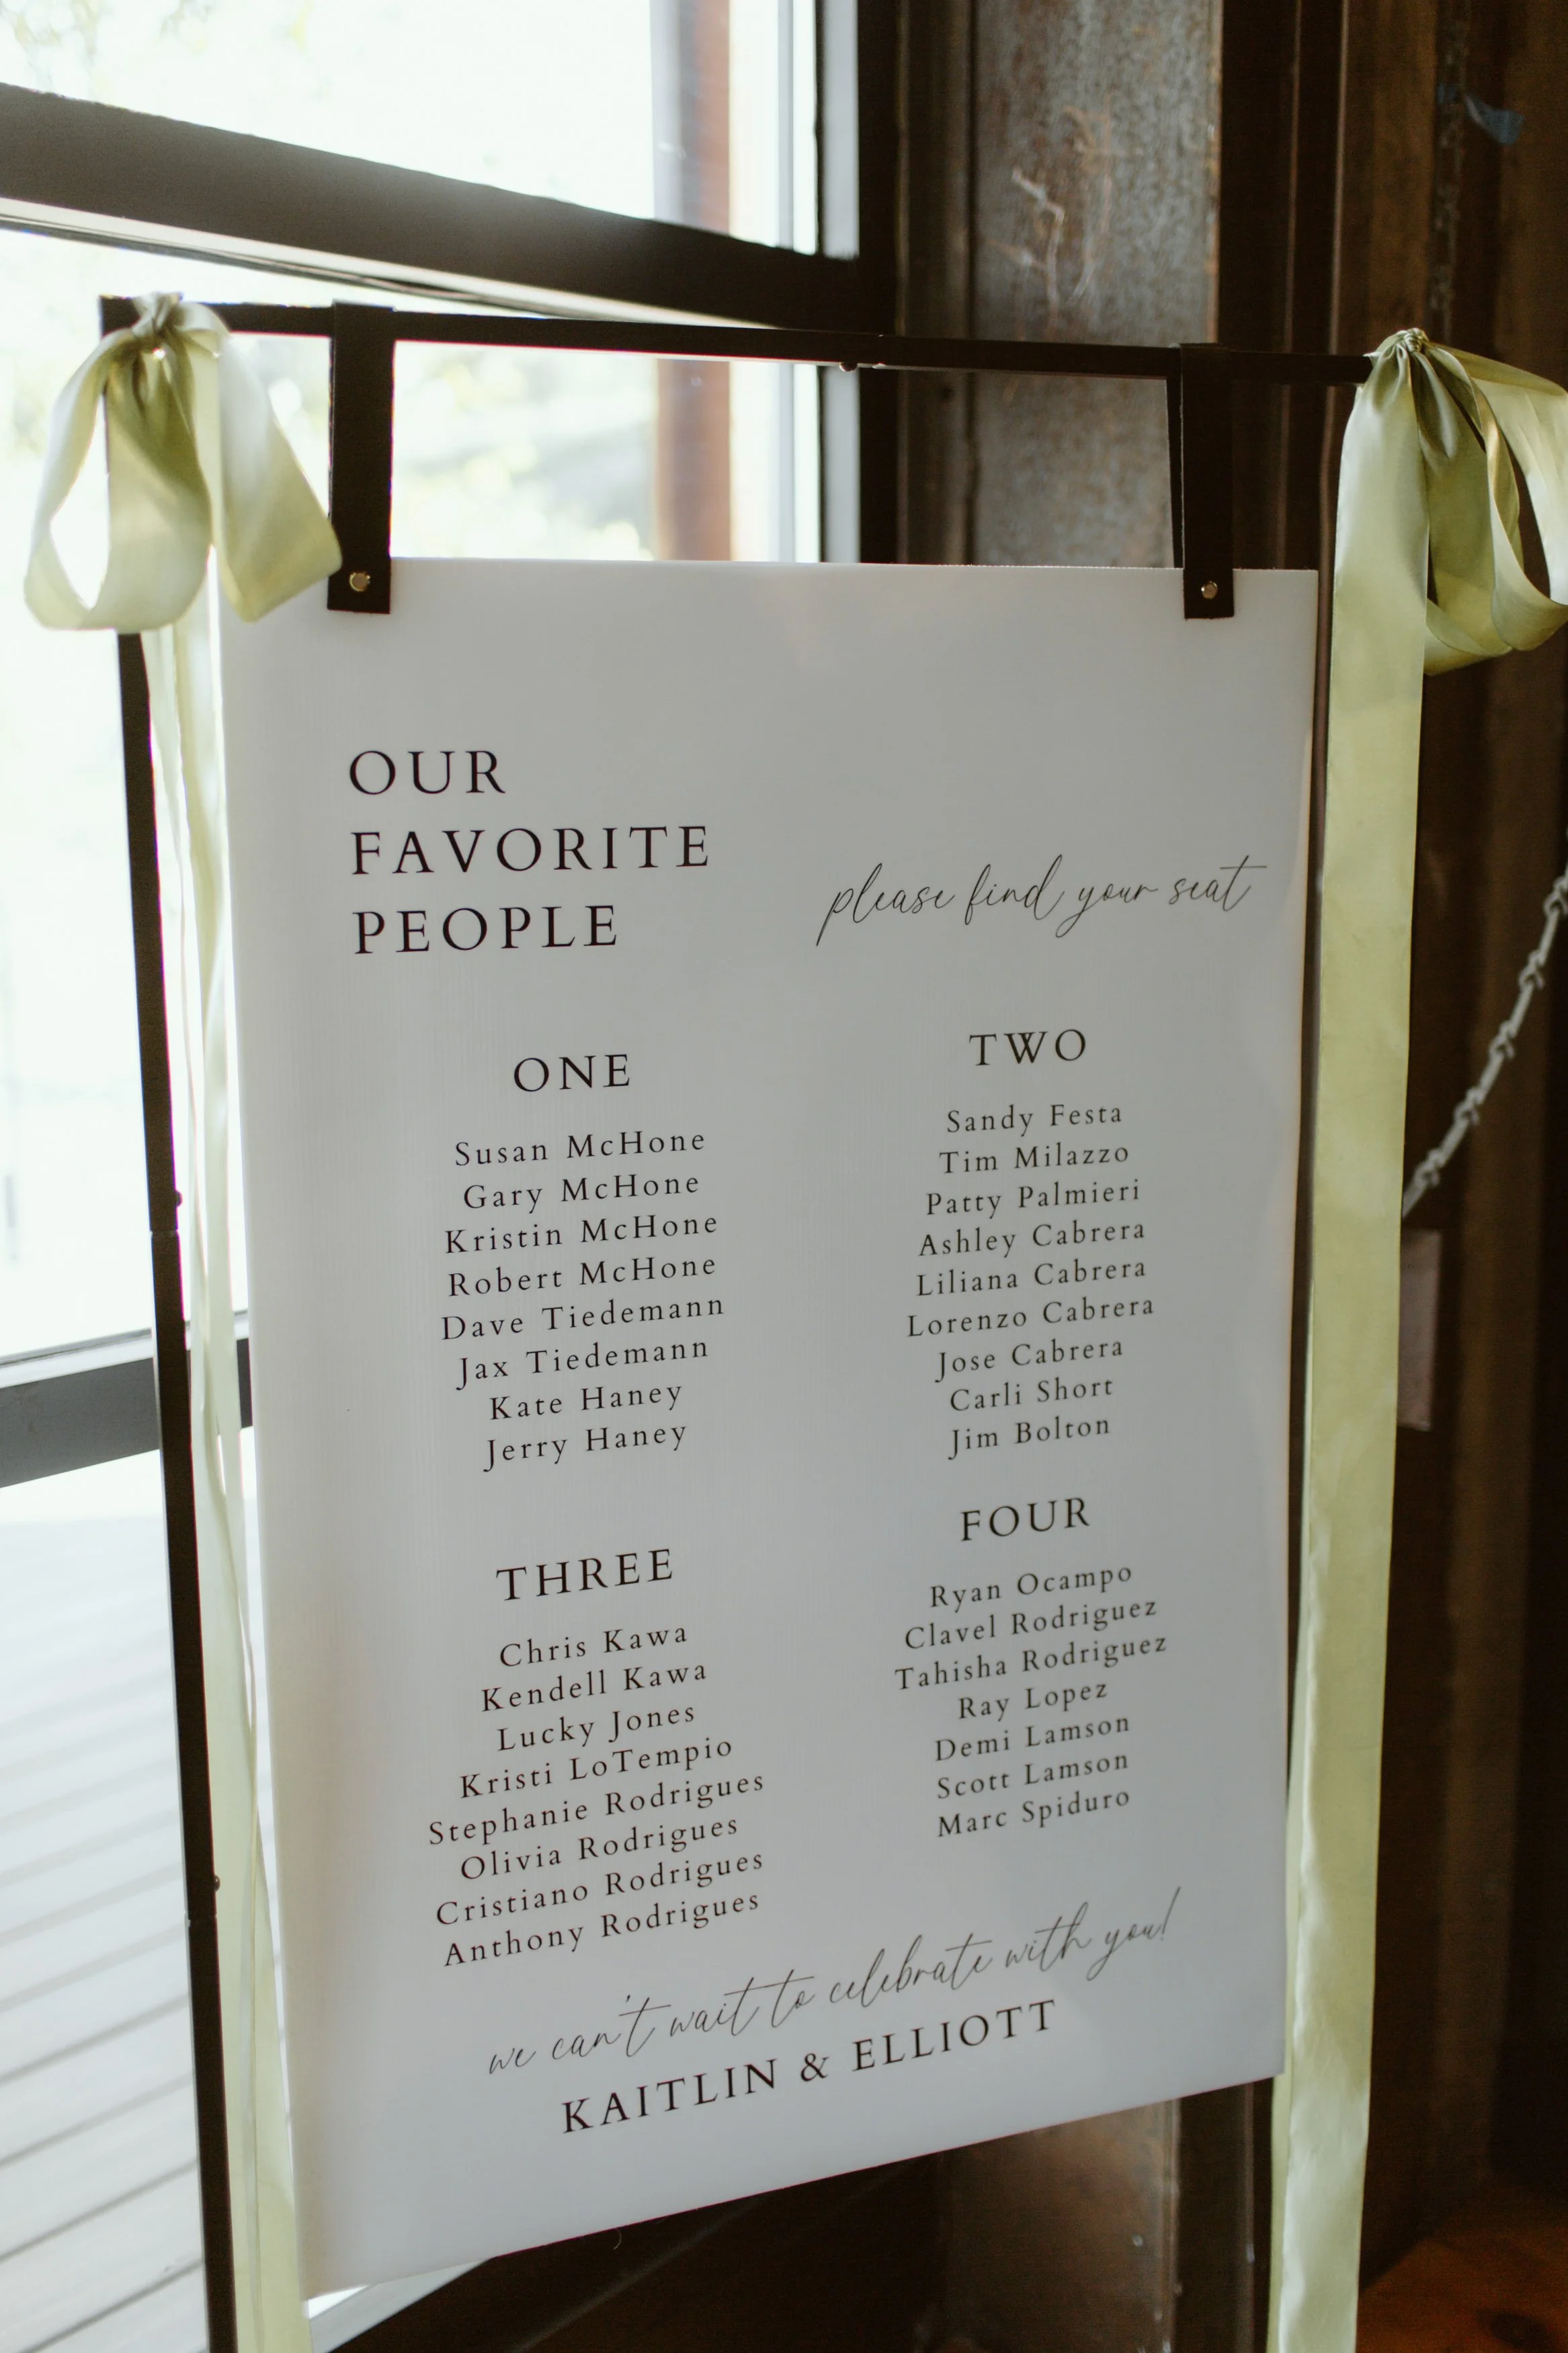 OUR
FAVORITE
PEOPLE
please find your seat
ONE
Susan McHone
Gary McHone
Kristin McHone
Robert McHone
Dave Tiedemann
Jax Tiedemann
Kate Haney
Jerry Haney
TWO
Sandy Festa
Tim Milazzo
Patty Palmieri
Ashley Cabrera
Liliana Cabrera
Lorenzo Cabrera
Jose Cabrera
Carli Short
Jim Bolton
THREE
Chris Kawa
Kendell Kawa
Lucky Jones
Kristi LoTempio
Stephanie Rodrigues
Olivia Rodrigues
Cristiano Rodrigues
Anthony Rodrigues
FOUR
Ryan Ocampo
Clavel Rodriguez
Tahisha Rodriguez
Ray Lopez
Demi Lamson
Scott Lamson
Marc Spiduro
we can't wait to celebrate with you!
KAITLIN & ELLIOTT